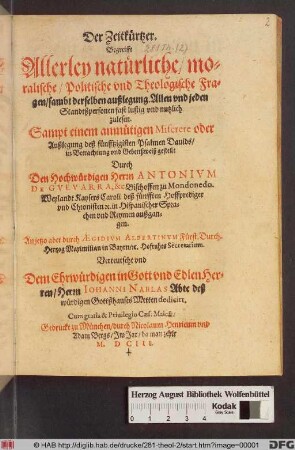 2
Der Zeitkürtzer.
Begreifft
Allerley natürliche/ mo-
ralische/ Politische vnd Theologische Fra-
gen/ sambt derselben außlegung. Allen vnd jeden
Standtspersonen fast lustig vnd nutzlich
zulesen.
Sampt einem anmütigen Miserere oder
Außlegung deß fünfftzigisten Psalmen Dauids/
in Betrachtung vnd Gebettsweiß gestellt
Durch
Den Hochwürdigen Herrn ANTONIVM
DE GVEVARRA, &c. Bischoffen zu Mondonedo.
Weylandt Kaysers Caroli deß fünfften Hoffprediger
vnd Chronisten &c. in Hispanischer Spra-
chen vnd Reymen außgan-
gen.
Anjetzo aber durch ÆGIDIVM ALBERTINVM Fürst. Durch.
Hertzog Maximilian in Bayrn &c. Hofraths Secretarium.
Verteutscht vnd
Dem Ehrwürdigen in Gott vnd Edlen Her-
ren/ Herrn IOHANNI NABLAS Abte deß
würdigen Gottshauß Metten dedicirt,
Cum gratia & Priuilegio Cæs. Maiest.
Gedruckt zu München/ durch Nicolaum Henricum vnd
Adam Bergs/ Im Jar/ da man zehlt
M. D CIII.
Herzog August Bibliothek Wolfenbüttel
Kodak
Color Scale
© HAB http://diglib.hab.de/drucke/281-theol-2/start.htm?image=00001
DFG